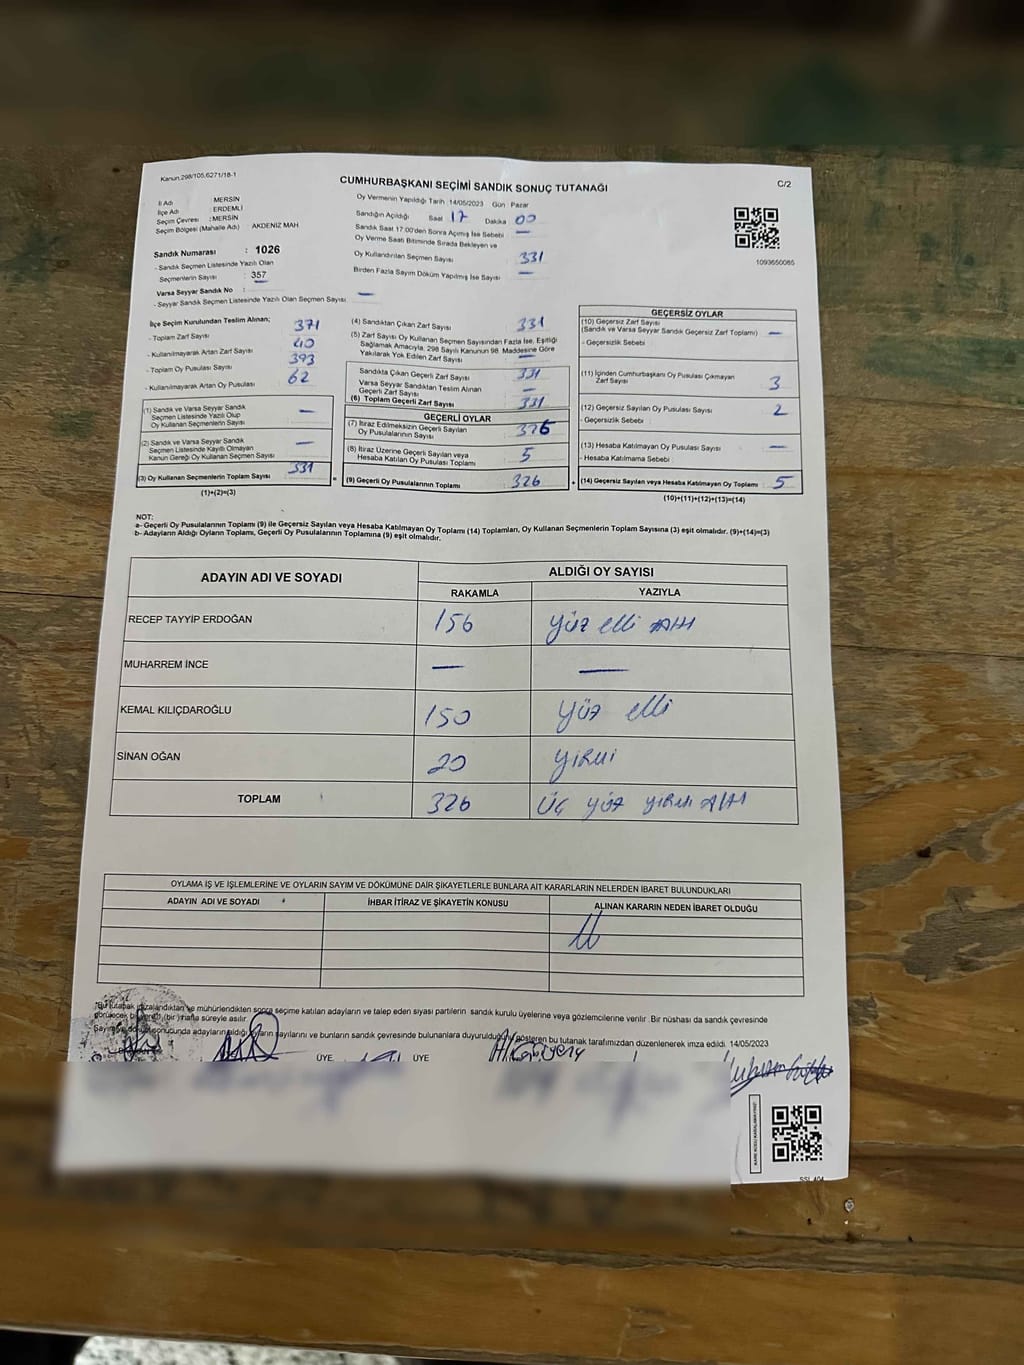 Kanun.298/105,6271/18-1
CUMHURBAŞKANI SEÇİMİ SANDIK SONUÇ TUTANAĞI
C/2
İl Adı : MERSİN
İlçe Adı : ERDEMLİ
Seçim Çevresi : MERSİN
Seçim Bölgesi (Mahalle Adı) AKDENİZ MAH
Sandık Numarası : 1026
- Sandık Seçmen Listesinde Yazılı Olan
Seçmenlerin Sayısı : 357
Varsa Seyyar Sandık No : —
- Seyyar Sandık Seçmen Listesinde Yazılı Olan Seçmen Sayısı:
Oy Vermenin Yapıldığı Tarih : 14/05/2023 Gün : Pazar
Sandığın Açıldığı Saat 17 Dakika 00
Sandık Saat 17:00'den Sonra Açılmış İse Sebebi —
Oy Verme Saati Bitiminde Sırada Bekleyen ve
Oy Kullandırılan Seçmen Sayısı 331
Birden Fazla Sayım Döküm Yapılmış İse Sayısı —
1093650085
İlçe Seçim Kurulundan Teslim Alınan;
- Toplam Zarf Sayısı 371
- Kullanılmayarak Artan Zarf Sayısı 40
- Toplam Oy Pusulası Sayısı 393
- Kullanılmayarak Artan Oy Pusulası 62
(1) Sandık ve Varsa Seyyar Sandık
Seçmen Listesinde Yazılı Olup
Oy Kullanan Seçmenlerin Sayısı —
(2) Sandık ve Varsa Seyyar Sandık
Seçmen Listesinde Kayıtlı Olmayan
Kanun Gereği Oy Kullanan Seçmen Sayısı —
(3) Oy Kullanan Seçmenlerin Toplam Sayısı 331
(1)+(2)=(3)
(4) Sandıktan Çıkan Zarf Sayısı 331
(5) Zarf Sayısı Oy Kullanan Seçmen Sayısından Fazla İse, Eşitliği
Sağlamak Amacıyla, 298 Sayılı Kanunun 98. Maddesine Göre
Yakılarak Yok Edilen Zarf Sayısı —
Sandıkta Çıkan Geçerli Zarf Sayısı 331
Varsa Seyyar Sandıktan Teslim Alınan
Geçerli Zarf Sayısı —
(6) Toplam Geçerli Zarf Sayısı 331
GEÇERLİ OYLAR
(7) İtiraz Edilmeksizin Geçerli Sayılan
Oy Pusulalarının Sayısı 326
(8) İtiraz Üzerine Geçerli Sayılan veya
Hesaba Katılan Oy Pusulası Toplamı 5
(9) Geçerli Oy Pusulalarının Toplamı 326
GEÇERSİZ OYLAR
(10) Geçersiz Zarf Sayısı
(Sandık ve Varsa Seyyar Sandık Geçersiz Zarf Toplamı) —
- Geçersizlik Sebebi :
(11) İçinden Cumhurbaşkanı Oy Pusulası Çıkmayan
Zarf Sayısı 3
(12) Geçersiz Sayılan Oy Pusulası Sayısı 2
- Geçersizlik Sebebi :
(13) Hesaba Katılmayan Oy Pusulası Sayısı —
- Hesaba Katılmama Sebebi :
(14) Geçersiz Sayılan veya Hesaba Katılmayan Oy Toplamı 5
(10)+(11)+(12)+(13)=(14)
NOT:
a- Geçerli Oy Pusulalarının Toplamı (9) ile Geçersiz Sayılan veya Hesaba Katılmayan Oy Toplamı (14) Toplamları, Oy Kullanan Seçmenlerin Toplam Sayısına (3) eşit olmalıdır. (9)+(14)=(3)
b- Adayların Aldığı Oyların Toplamı, Geçerli Oy Pusulalarının Toplamına (9) eşit olmalıdır.
ADAYIN ADI VE SOYADI ALDIĞI OY SAYISI
RAKAMLA YAZIYLA
RECEP TAYYİP ERDOĞAN 156 yüz elli altı
MUHARREM İNCE — —
KEMAL KILIÇDAROĞLU 150 yüz elli
SİNAN OĞAN 20 yirmi
TOPLAM 326 üç yüz yirmi altı
OYLAMA İŞ VE İŞLEMLERİNE VE OYLARIN SAYIM VE DÖKÜMÜNE DAİR ŞİKAYETLERLE BUNLARA AİT KARARLARIN NELERDEN İBARET BULUNDUKLARI
ADAYIN ADI VE SOYADI İHBAR İTİRAZ VE ŞİKAYETİN KONUSU ALINAN KARARIN NEDEN İBARET OLDUĞU
*Bu tutanak imzalandıktan ve mühürlendikten sonra seçime katılan adayların ve talep eden siyasi partilerin sandık kurulu üyelerine veya gözlemcilerine verilir. Bir nüshası da sandık çevresinde
görülecek bir yere (bir) hafta süreyle asılır.
Sayım ve döküm sonucunda adayların aldığı oyların sayılarını ve bunların sandık çevresinde bulunanlara duyurulduğunu gösteren bu tutanak tarafımızdan düzenlenerek imza edildi. 14/05/2023
ÜYE ÜYE